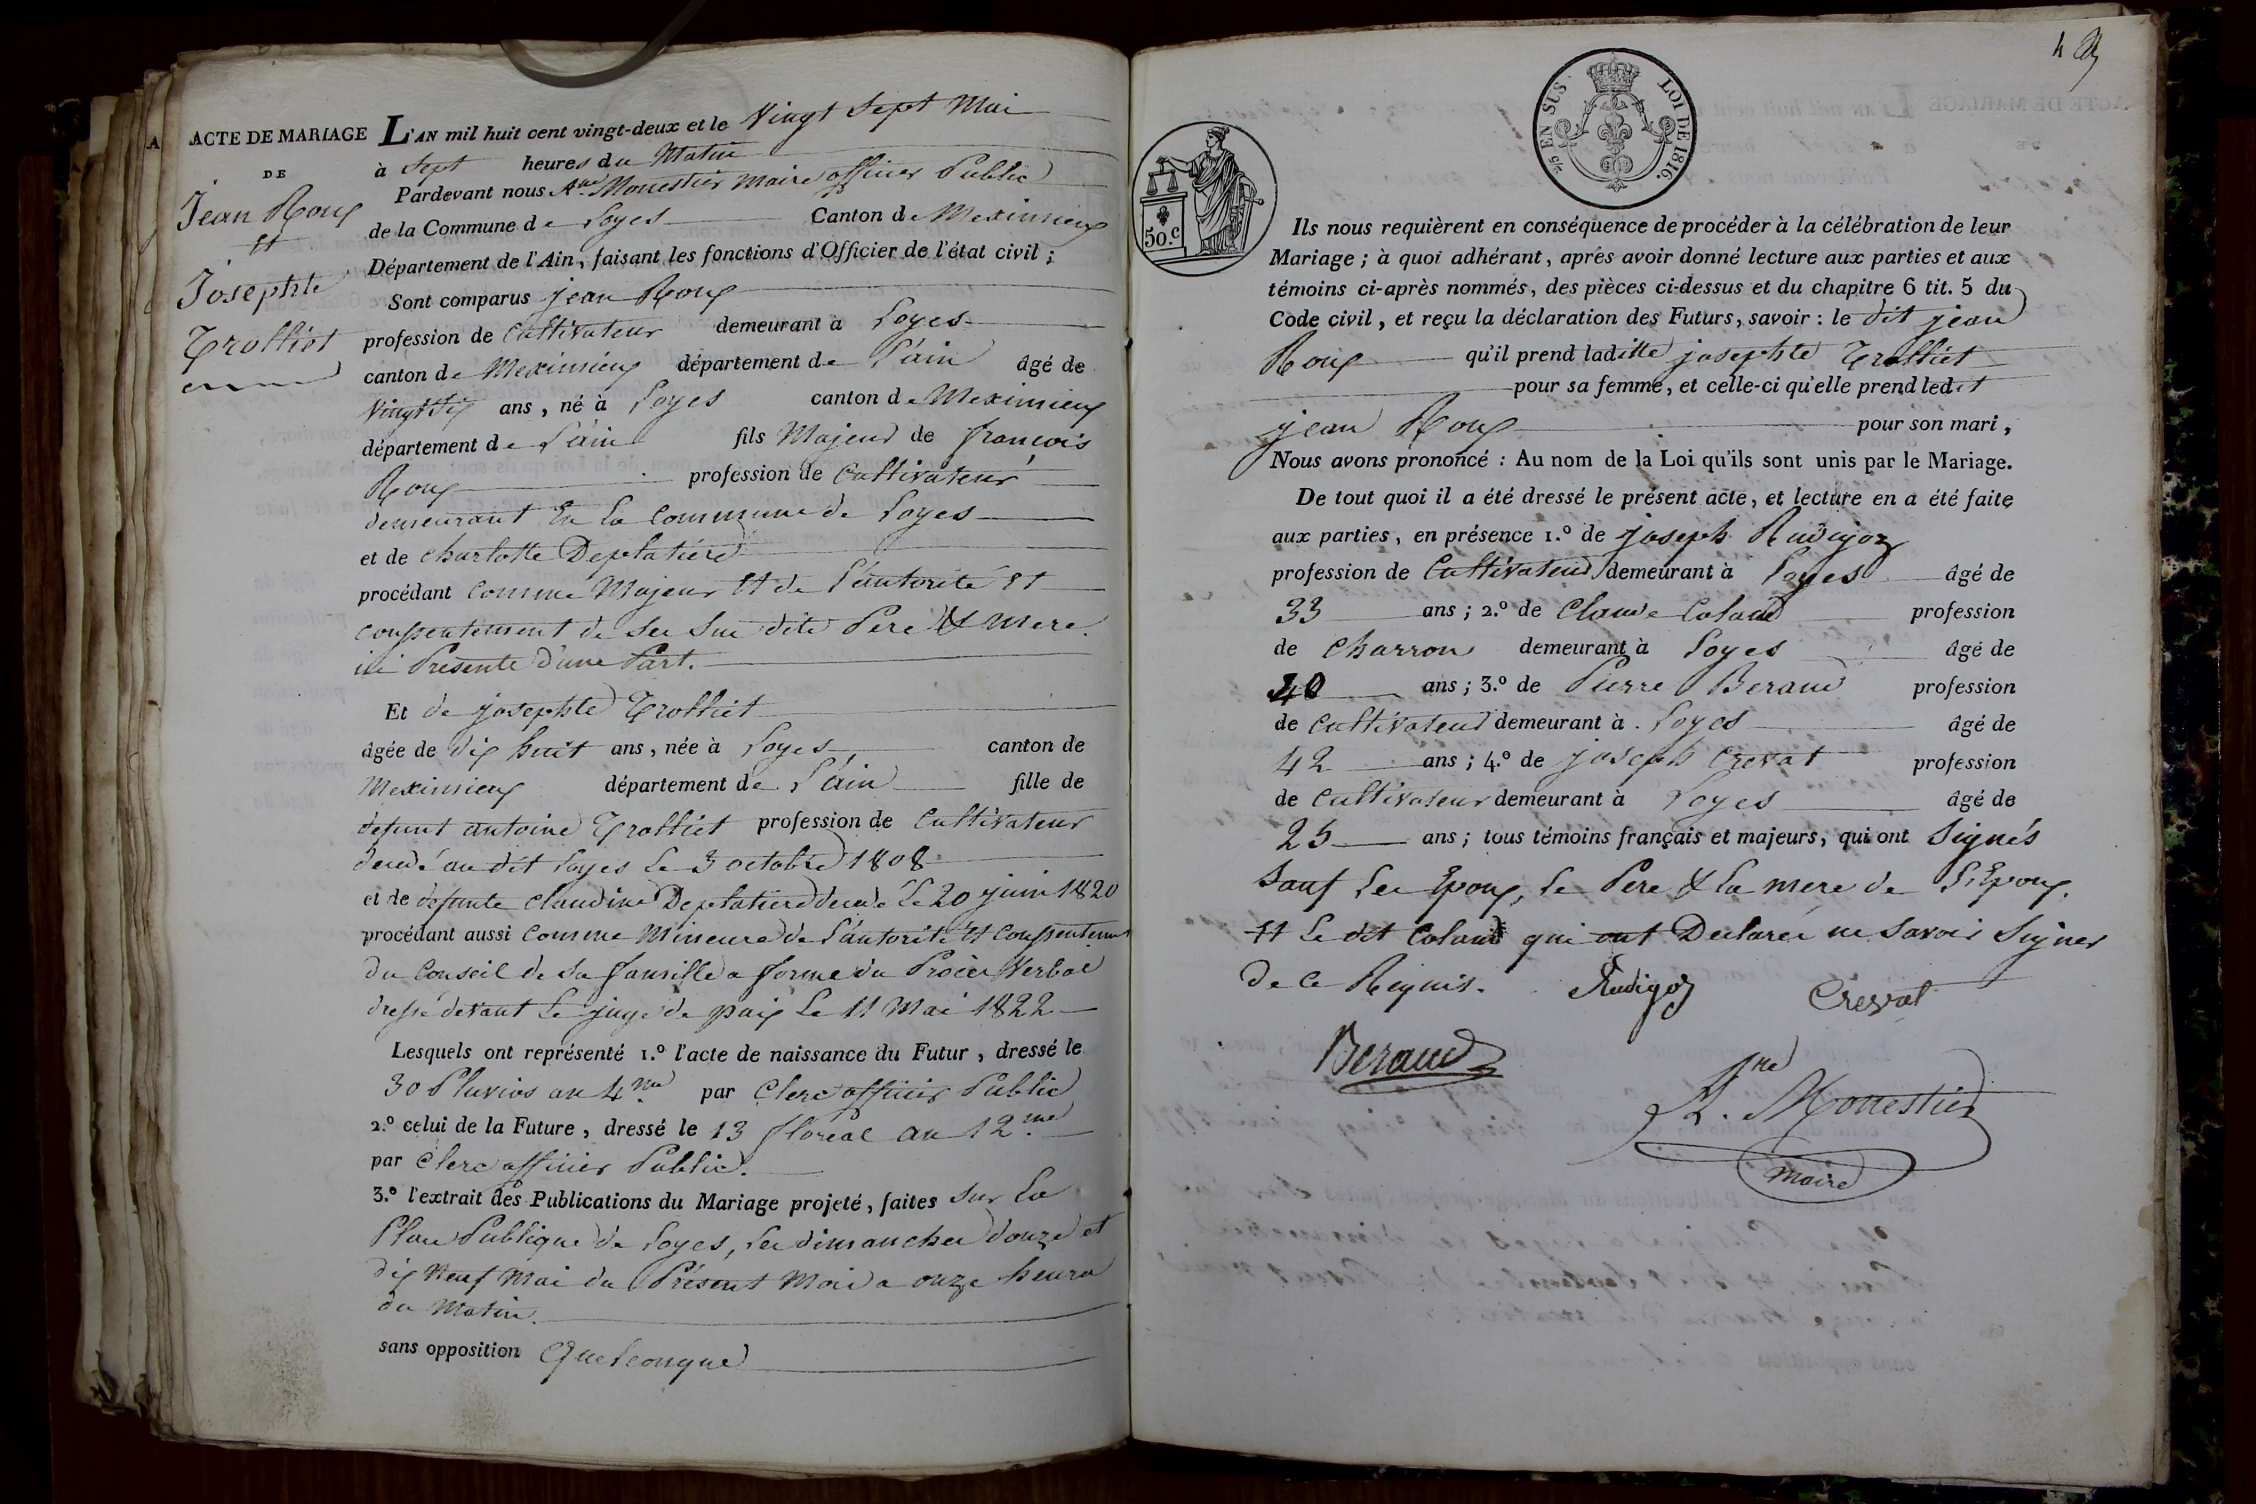 ACTE DE MARIAGE
DE
Jean Roux
et
Josephte
Trolliet
L'AN mil huit cent vingt-deux et le Vingt Sept Mai
à Sept heures du Matin
Pardevant nous A.ne Monestier Maire officier Public
de la Commune de Loyes Canton de Meximieux
Département de l'Ain, faisant les fonctions d'Officier de l'état civil ;
Sont comparus jean Roux
profession de Cultivateur demeurant à Loyes
canton de Meximieux département de L'ain âgé de
Vingt Six ans, né à Loyes canton de Meximieux
département de L'ain fils Majeur de françois
Roux profession de Cultivateur
demeurant En La Commune de Loyes
et de Charlotte Deplatiere
procédant Comme Majeur Et de L'autorité Et
Consentement de Ses Sus dits Pere & Mere
ici Présents d'une Part.
Et de josephte Trolliet
âgée de dix huit ans, née à Loyes canton de
Meximieux département de L'ain fille de
defunt antoine Trolliet profession de Cultivateur
decedé au dit Loyes Le 3 octobre 1808
et de defunte Claudine Deplatiere decedé Le 20 juin 1820
procédant aussi Comme Mineure de L'autorité Et Consentement
du Conseil de Sa famille a forme du Procès Verbal
dressé devant Le juge de paix Le 11 Mai 1822
Lesquels ont représenté 1.º l'acte de naissance du Futur, dressé le
30 Pluvios an 4.me par Clerc officier Public
2.º celui de la Future, dressé le 13 floreal an 12.me
par Clerc officier Public.
3.º l'extrait des Publications du Mariage projeté, faites Sur La
Place Publique de Loyes, Les dimanches douze et
dix Neuf Mai du Présent Mois a onze heures
du Matin.
sans opposition Quelconque
5/c EN SUS. LOI DE 1816.
50.c
Ils nous requièrent en conséquence de procéder à la célébration de leur
Mariage ; à quoi adhérant, après avoir donné lecture aux parties et aux
témoins ci-après nommés, des pièces ci-dessus et du chapitre 6 tit. 5 du
Code civil, et reçu la déclaration des Futurs, savoir : le dit jean
Roux qu'il prend ladite josephte Trolliet
pour sa femme, et celle-ci qu'elle prend ledit
jean Roux pour son mari,
Nous avons prononcé : Au nom de la Loi qu'ils sont unis par le Mariage.
De tout quoi il a été dressé le présent acte, et lecture en a été faite
aux parties, en présence 1.º de joseph Rudigoz
profession de Cultivateur demeurant à Loyes âgé de
33 ans ; 2.º de Claude Coland profession
de Charron demeurant à Loyes âgé de
40 ans ; 3.º de Pierre Beraud profession
de Cultivateur demeurant à Loyes âgé de
42 ans ; 4.º de joseph Crevat profession
de Cultivateur demeurant à Loyes âgé de
25 ans ; tous témoins français et majeurs, qui ont Signés
Sauf Les Epoux, Le Pere & La mere de L'Epoux.
Et Le dit Coland qui ont Declarée ne Savoir Signer
de ce Requis. Rudigoz Crevat
Beraud
A.ne Monestier
Maire